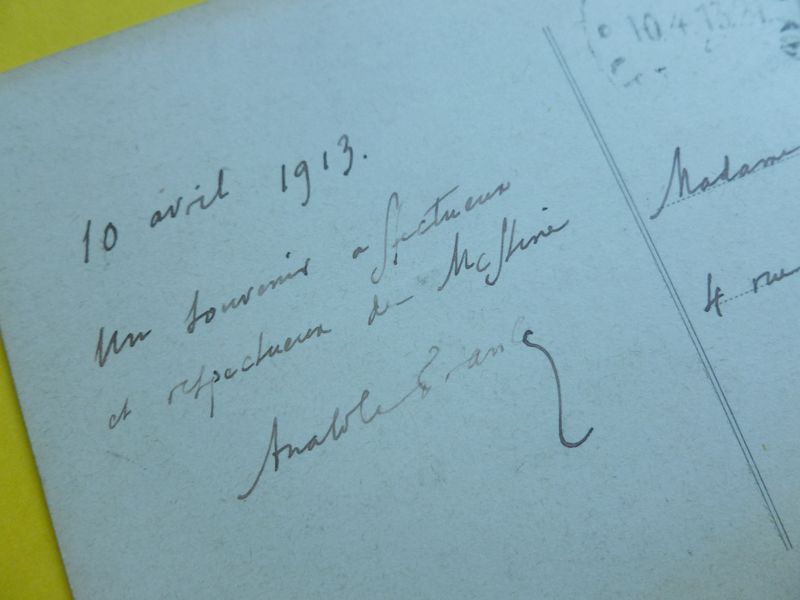 10 avril 1913.
Un souvenir affectueux
et respectueux de
Anatole France
10.4.13
Madame
4 rue